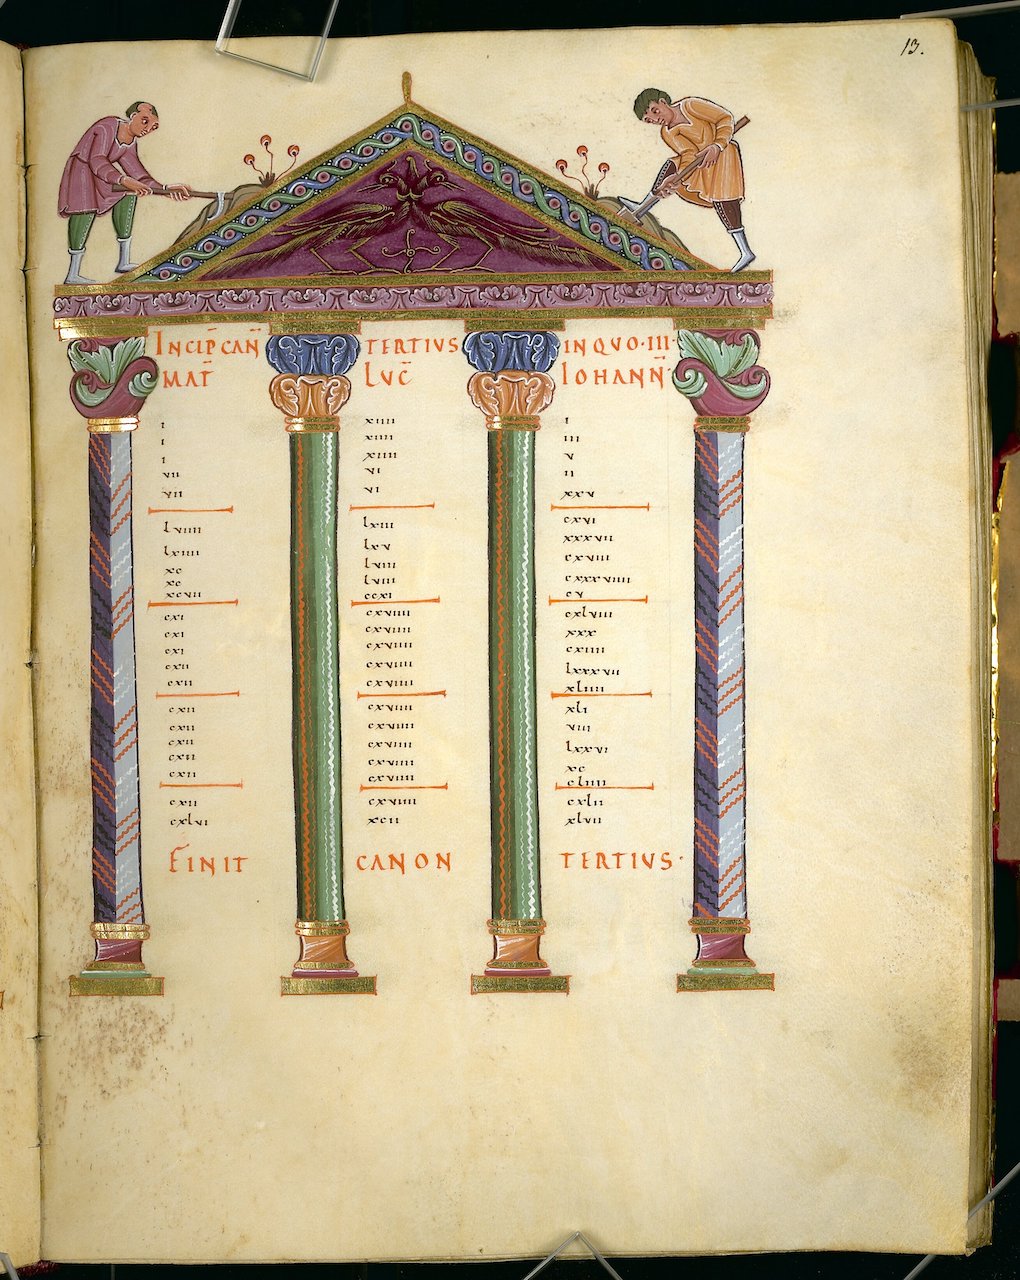 13.
INCIP̄ CAN̄ TERTIVS IN QVO·III·
MAT̄ LVC̄ IOHANN̄·
i xiiii i
i xiiii iii
i xiiii v
vii vi ii
vii vi xxv
lviiii lxiii cxvi
lxiiii lxv xxxvii
xc lviii cxviii
xc lviii cxxxviiii
xcvii ccxi cv
cxi cxviiii cxlviii
cxi cxviiii xxx
cxi cxviiii cxiiii
cxii cxviiii lxxxvii
cxii cxviiii xliiii
cxii cxviiii xli
cxii cxviiii viii
cxii cxviiii lxxvi
cxii cxviiii xc
cxii cxviiii cliiii
cxii cxviiii cxlii
cxlvi xcii xlvii
FINIT CANON TERTIVS·